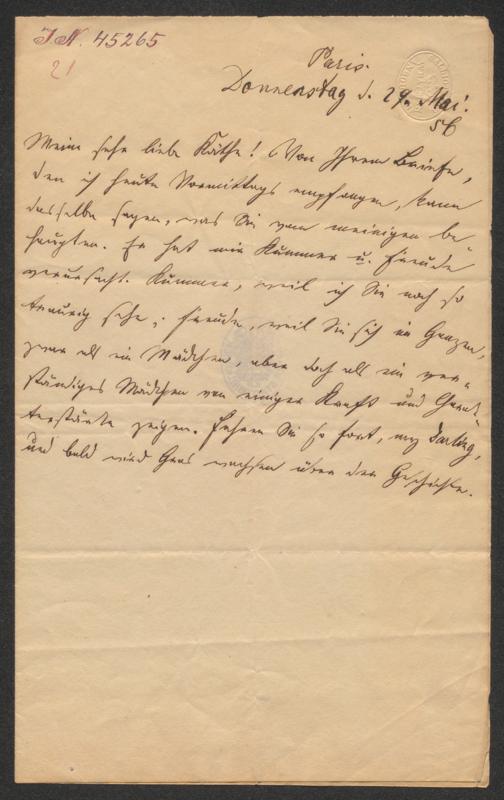 I.N. 45265
21
Paris.
Donnerstag d. 29. Mai.
56
Meine sehr liebe Käthe! Von Ihrem Briefe,
den ich heute Vormittags empfangen, kann
dasselbe sagen, was Sie vom meinigen be-
haupten. Er hat mir Kummer u. Freude
verursacht. Kummer, weil ich Sie noch so
traurig sehe; Freude, weil Sie sich im Ganzen,
zwar als ein Mädchen, aber doch als ein ver-
ständiges Mädchen von einiger Kraft und
terstärke zeigen. Fahren Sie so fort, my Darling,
und bald wird Gras wachsen über der Geschichte.